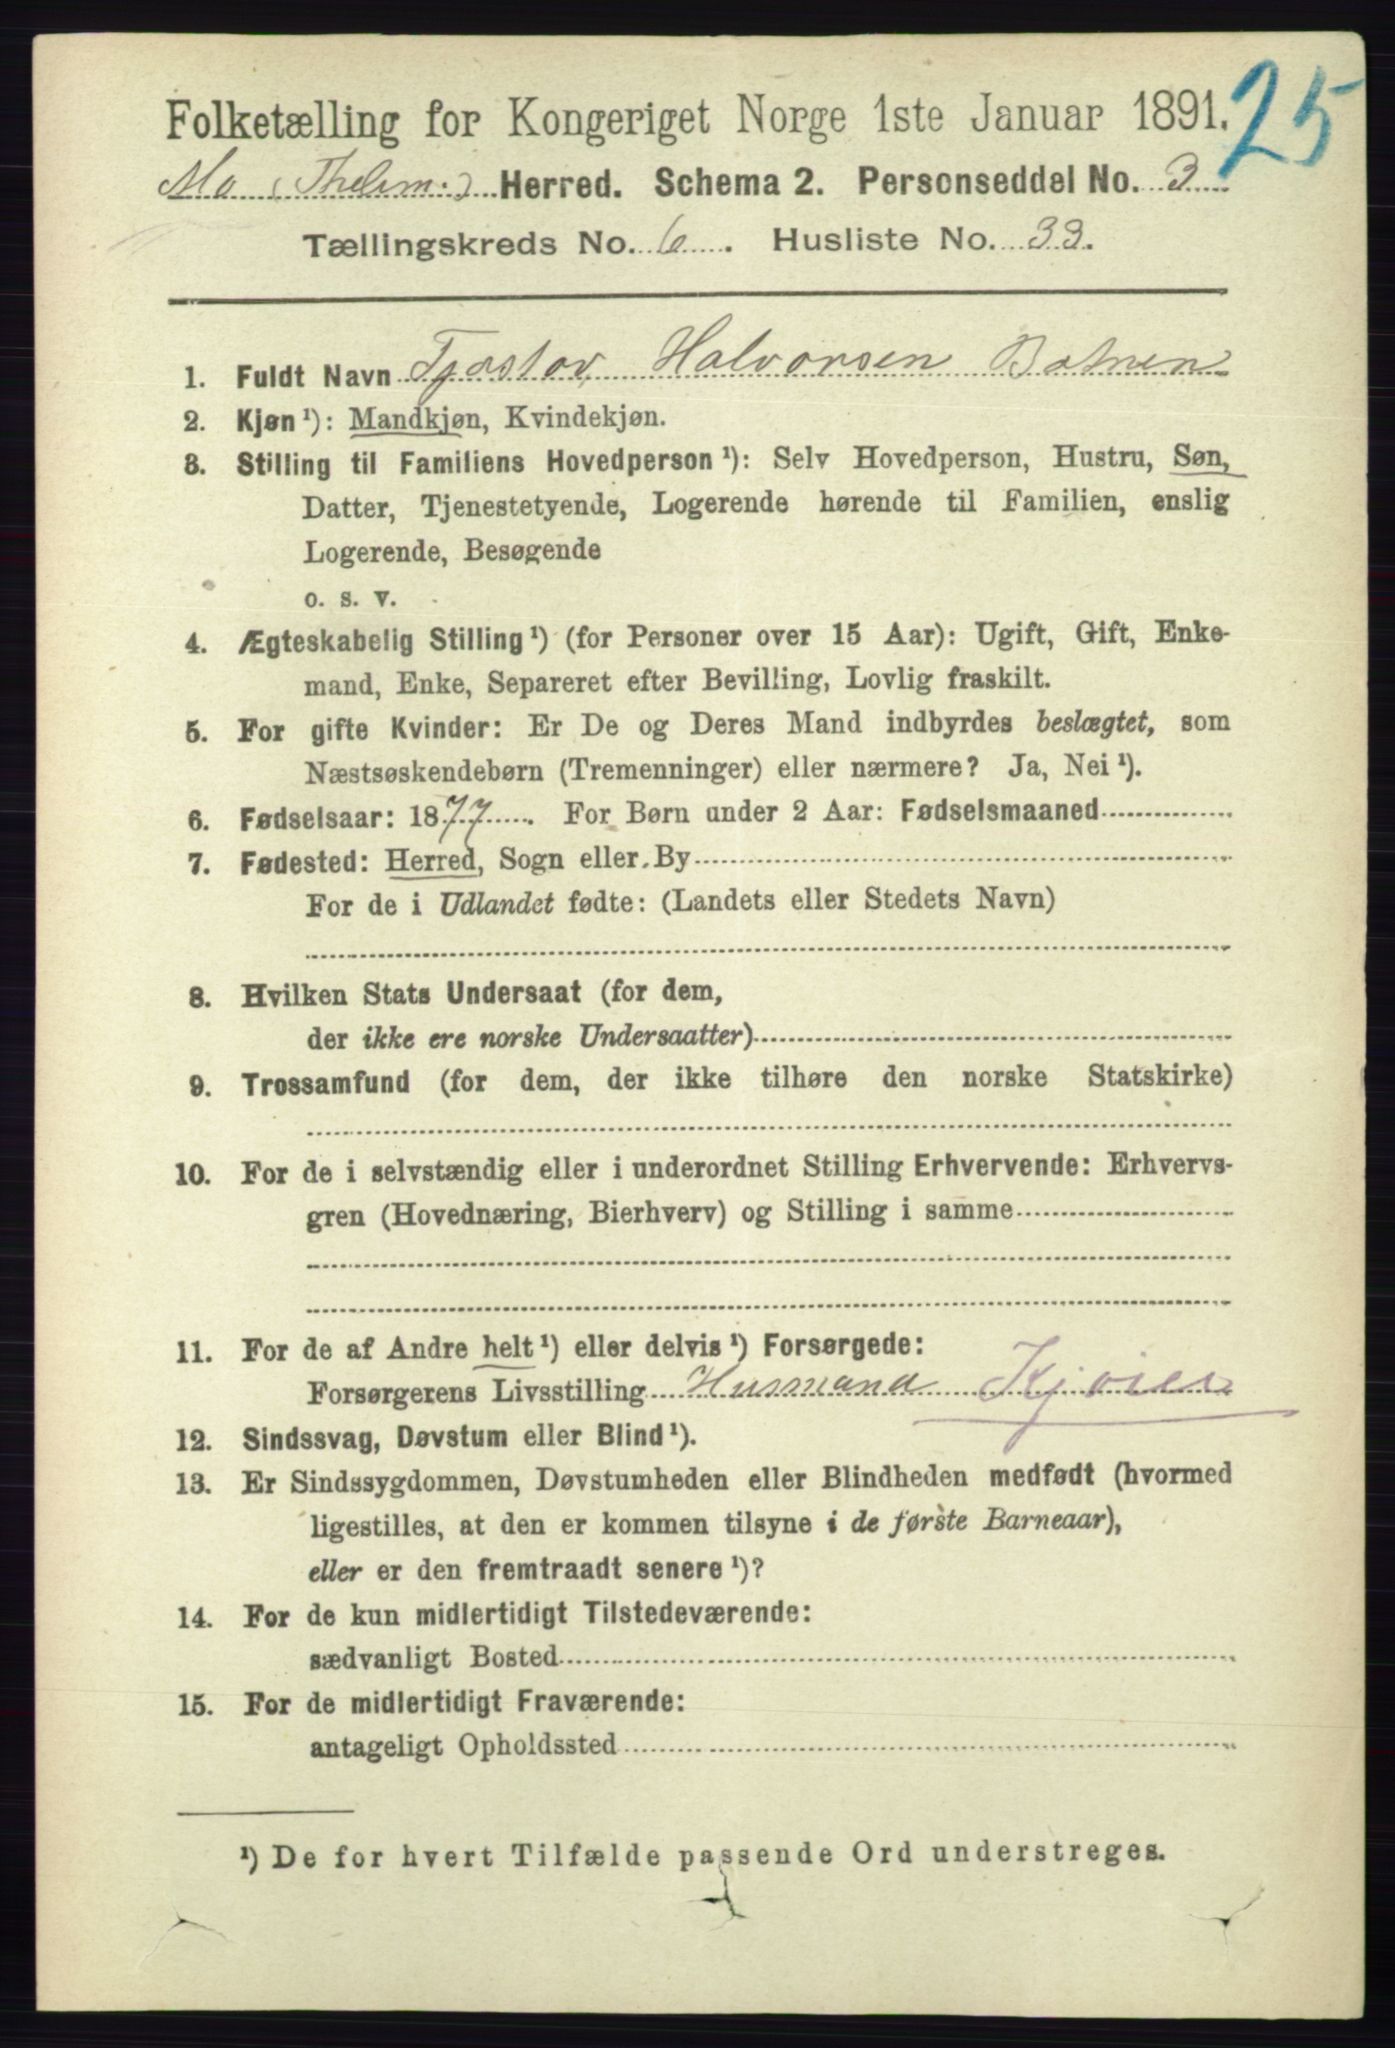 25
Folketælling for Kongeriget Norge 1ste Januar 1891.
Mo (Thelem.) Herred. Schema 2. Personseddel No. 3
Tællingskreds No. 6. Husliste No. 33.
1. Fuldt Navn Tjøstov Halvorsen Botnen
2. Kjøn ¹): Mandkjøn, Kvindekjøn.
3. Stilling til Familiens Hovedperson ¹): Selv Hovedperson, Hustru, Søn,
Datter, Tjenestetyende, Logerende hørende til Familien, enslig
Logerende, Besøgende
o. s. v.
4. Ægteskabelig Stilling ¹) (for Personer over 15 Aar): Ugift, Gift, Enke-
mand, Enke, Separeret efter Bevilling, Lovlig fraskilt.
5. For gifte Kvinder: Er De og Deres Mand indbyrdes beslægtet, som
Næstsøskendebørn (Tremenninger) eller nærmere? Ja, Nei ¹).
6. Fødselsaar: 1877. For Børn under 2 Aar: Fødselsmaaned
7. Fødested: Herred, Sogn eller By
For de i Udlandet fødte: (Landets eller Stedets Navn)
8. Hvilken Stats Undersaat (for dem,
der ikke ere norske Undersaatter)
9. Trossamfund (for dem, der ikke tilhøre den norske Statskirke)
10. For de i selvstændig eller i underordnet Stilling Erhvervende: Erhvervs-
gren (Hovednæring, Bierhverv) og Stilling i samme
11. For de af Andre helt ¹) eller delvis ¹) Forsørgede:
Forsørgerens Livsstilling Husmand
12. Sindssvag, Døvstum eller Blind ¹).
13. Er Sindssygdommen, Døvstumheden eller Blindheden medfødt (hvormed
ligestilles, at den er kommen tilsyne i de første Barneaar),
eller er den fremtraadt senere ¹)?
14. For de kun midlertidigt Tilstedeværende:
sædvanligt Bosted
15. For de midlertidigt Fraværende:
antageligt Opholdssted
¹) De for hvert Tilfælde passende Ord understreges.